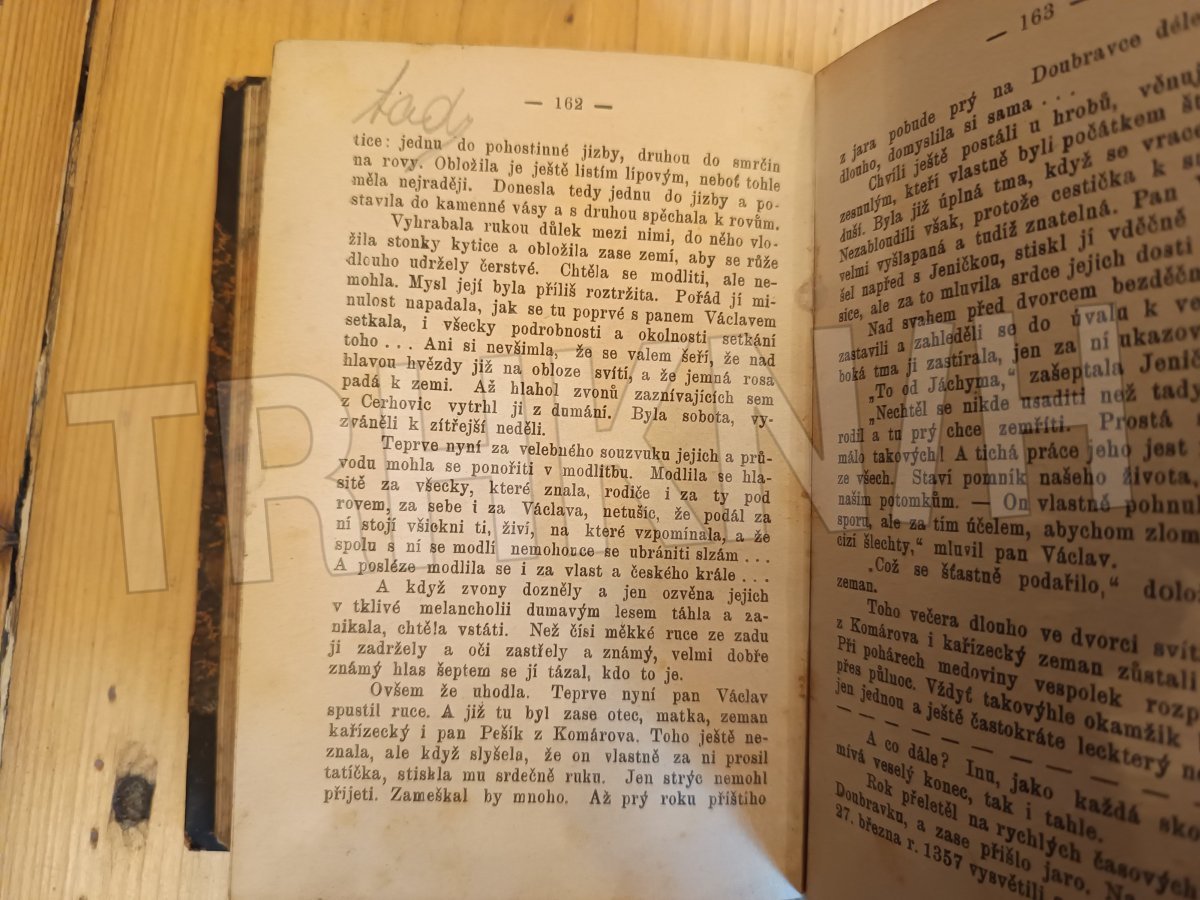 tady
— 162 —
tice: jednu do pohostinné jizby, druhou do smrčin
na rovy. Obložila je ještě listím lipovým, neboť tohle
měla nejraději. Donesla tedy jednu do jizby a po-
stavila do kamenné vásy a s druhou spěchala k rovům.
Vyhrabala rukou důlek mezi nimi, do něho vlo-
žila stonky kytice a obložila zase zemí, aby se růže
dlouho udržely čerstvé. Chtěla se modliti, ale ne-
mohla. Mysl její byla příliš roztržita. Pořád jí mi-
nulost napadala, jak se tu poprvé s panem Václavem
setkala, i všecky podrobnosti a okolnosti setkání
toho ... Ani si nevšimla, že se valem šeří, že nad
hlavou hvězdy již na obloze svítí, a že jemná rosa
padá k zemi. Až hlahol zvonů zaznívajících sem
z Cerhovic vytrhl ji z dumání. Byla sobota, vy-
zváněli k zítřejší neděli.
Teprve nyní za velebného souzvuku jejich a prů-
vodu mohla se ponořiti v modlitbu. Modlila se hla-
sitě za všecky, které znala, rodiče i za ty pod
rovem, za sebe i za Václava, netušíc, že podál za
ní stojí všickni ti, živí, na které vzpomínala, a že
spolu s ní se modlí nemohouce se ubrániti slzám ...
A posléze modlila se i za vlast a českého krále ...
A když zvony dozněly a jen ozvěna jejich
v tklivé melancholii dumavým lesem táhla a za-
nikala, chtěla vstáti. Než čísi měkké ruce ze zadu
ji zadržely a oči zastřely a známý, velmi dobře
známý hlas šeptem se jí tázal, kdo to je.
Ovšem že uhodla. Teprve nyní pan Václav
spustil ruce. A již tu byl zase otec, matka, zeman
kařízecký i pan Pešík z Komárova. Toho ještě ne-
znala, ale když slyšela, že on vlastně za ni prosil
tatíčka, stiskla mu srdečně ruku. Jen strýc nemohl
přijeti. Zameškal by mnoho. Až prý roku příštího
— 163 —
z jara pobude prý na Doubravce déle
dlouho, domyslila si sama ...
Chvíli ještě postáli u hrobů, věnuj
zesnulým, kteří vlastně byli počátkem št
duší. Byla již úplná tma, když se vrac
Nezabloudili však, protože cestička k s
velmi vyšlapaná a tudíž znatelná. Pan
šel napřed s Jeničkou, stiskl jí vděčně
sice, ale za to mluvila srdce jejich dosti
Nad svahem před dvorcem bezděčn
zastavili a zahleděli se do úvalu k v
boká tma ji zastírala, jen za ní ukazov
„To od Jáchyma,“ zašeptala Jenič
„Nechtěl se nikde usaditi než tady
rodil a tu prý chce zemříti. Prostá
málo takových! A tichá práce jeho jest
ze všech. Staví pomník našeho života,
našim potomkům. — On vlastně pohnul
sporu, ale za tím účelem, abychom zlom
cizí šlechty,“ mluvil pan Václav.
„Což se šťastně podařilo,“ dolož
zeman.
Toho večera dlouho ve dvorci svít
z Komárova i kařízecký zeman zůstali
Při pohárech medoviny vespolek rozp
přes půlnoc. Vždyť takovýhle okamžik
jen jednou a ještě častokráte leckterý ne
A co dále? Inu, jako každá sko
mívá veselý konec, tak i tahle.
Rok přeletěl na rychlých časových
Doubravku, a zase přišlo jaro. Na
27. března r. 1357 vysvětili
TRHKNIH